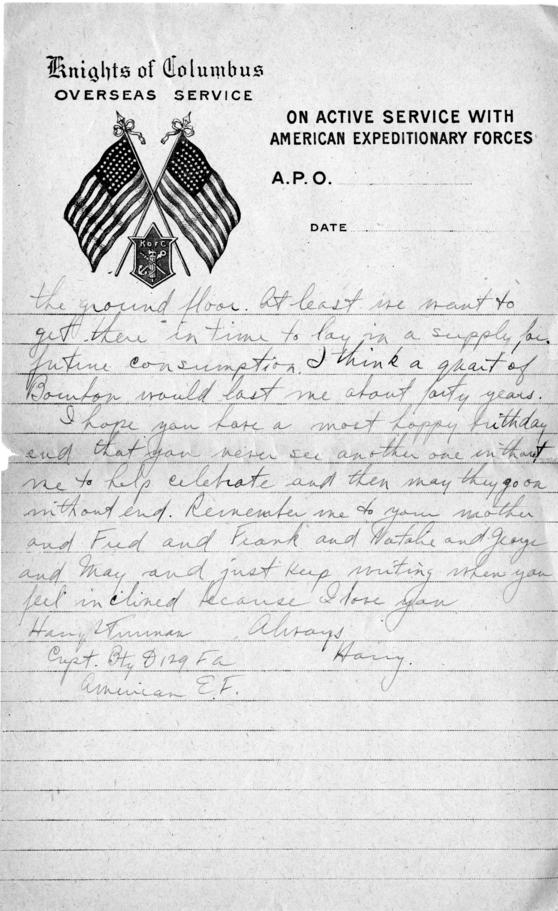 Knights of Columbus
OVERSEAS SERVICE
ON ACTIVE SERVICE WITH
AMERICAN EXPEDITIONARY FORCES
A.P.O.
DATE
K of C
the ground floor. At least we want to
get there in time to lay in a supply for
future consumption. I think a quart of
Bourbon would last me about forty years.
I hope you have a most happy birthday
and that you never see another one without
me to help celebrate and then may they go on
without end. Remember me to your mother
and Fred and Frank and Natalie and George
and May and just keep writing when you
feel inclined because I love you
Always
Harry.
Harry S Truman
Capt. Bty D 129 Fa
American E.F.